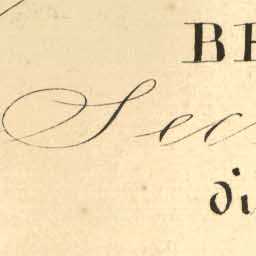 BE
Sec
di